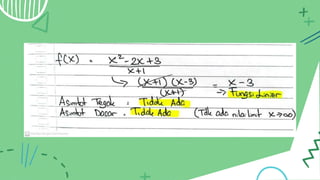 f(x) = x² - 2x + 3
x + 1
↳ (x+1) (x-3) = x - 3
(x+1) => Fungsi Linier
Asimtot Tegak : Tidak Ada
Asimtot Datar : Tidak Ada (Tdk ada nilai limit x→∞)